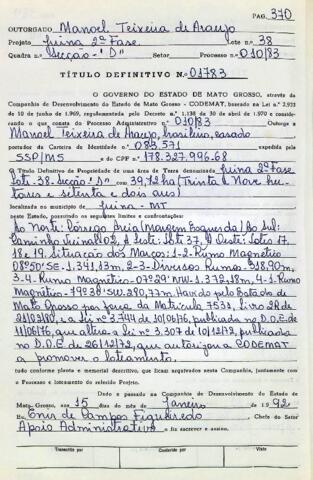 PAG. 370
OUTORGADO Manoel Teixeira de Araujo
Projeto Juina 2ª Fase Lote n.º 38
Quadra n.º Secção - "D" Setor Processo n.º 010/83
TÍTULO DEFINITIVO N.º 01783
O GOVERNO DO ESTADO DE MATO GROSSO, através da
Companhia de Desenvolvimento do Estado de Mato Grosso - CODEMAT, baseado na Lei n.º 2.933
de 10 de junho de 1.969, regulamentada pelo Decreto n.º 1.138 de 30 de abril de 1.970 e considerando o que consta do Processo Administrativo n.º 010/83 Outorga a
Manoel Teixeira de Araujo, brasileiro, casado
portador da Carteira de Identidade n.º 083.571
SSP/MS e do CPF n.º 178.327.996.68
O Título Definitivo de Propriedade de uma área de Terra denominada Juina 2ª Fase
Lote - 38 - Secção - "D" com 39,72 ha (Trinta e Nove hec
tares e setenta e dois ares)
localizada no município de Juina - MT
neste Estado, possuindo os seguintes limites e confrontações:
Ao Norte: Córrego Areia (Margem Esquerda) Ao Sul:
Caminho Vicinal 02, A Leste: Lote 37, A Oeste: Lotes 17,
18 e 19. Situação dos Marcos: 1-2 Rumo Magnético
08º50'SE - 1.341,13m, 2-3 Diversos Rumos - 318,90m,
3-4 Rumo Magnético - 07º29' NW - 1.372,18m, 4-1 Rumo
Magnético - 79º38' SW - 280,77m. Havido pelo Estado de
Mato Grosso por força da Matrícula 7533, Livro 2R de
21/03/80, e Lei nº 3.744 de 10/06/76, publicada no D.O.E de
11/06/76, que altera a lei nº 3.307 de 10/12/72, publicada
no D.O.E de 26/12/72, que autorizou a CODEMAT
a promover o loteamento.
tudo conforme planta e memorial descritivo, que ficam arquivados nesta Companhia, juntamente com
o Processo e loteamento do referido Projeto.
Dado e passado na Companhia de Desenvolvimento do Estado de
Mato Grosso, aos 15 dias do mês de Janeiro de 19 92
Eu, Enir de Campos Figueiredo Chefe do Setor
Apoio Administrativo o fiz escrever e assino.
Transcrito por Conferido por Visto